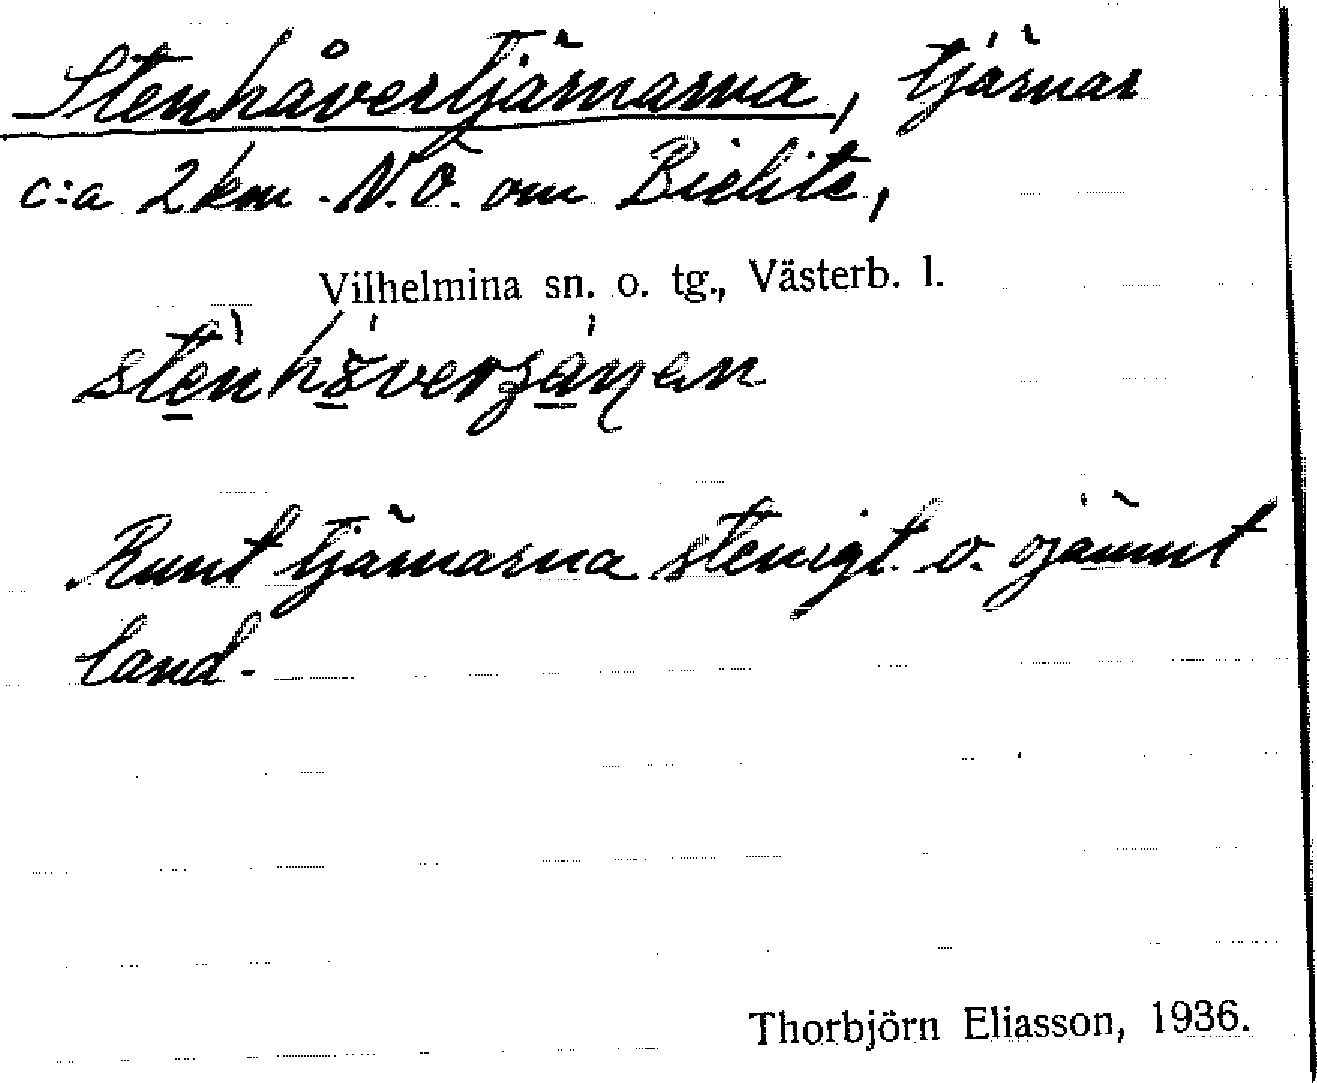 Stenhåvertjärnarna, tjärnar
c:a 2 km. N.Ö. om Bielite,
Vilhelmina sn. o. tg., Västerb. l.
Runt tjärnarna stenigt o. ojämnt
land.
Thorbjörn Eliasson, 1936.